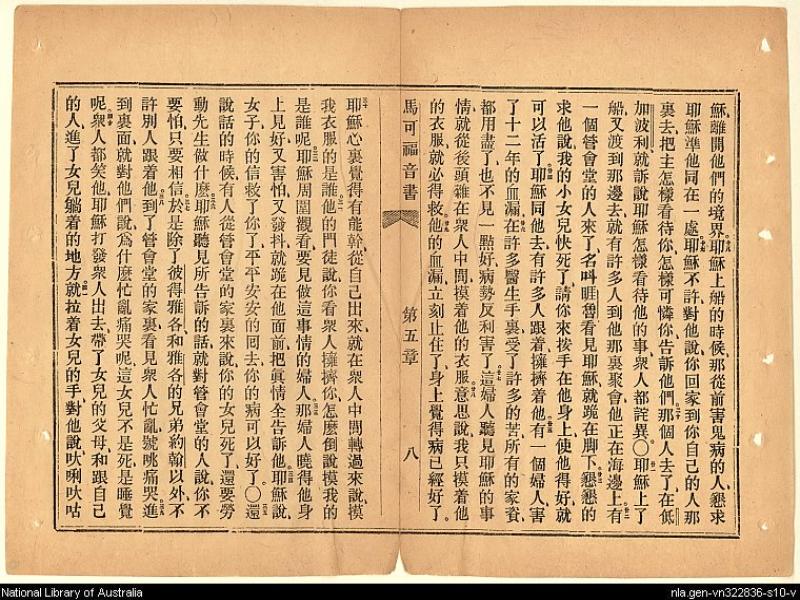 穌離開他們的境界耶穌上船的時候那從前害鬼病的人懇求
耶穌準他同在一處耶穌不許對他說你回家到你自己的人那
裏去把主怎樣看待你怎樣可憐你告訴他們那個人去了在低
加波利就訴說耶穌怎樣看待他的事衆人都詫異〇耶穌上了
船又渡到那邊去就有許多人到他那裏聚會他正在海邊上有
一個管會堂的人來了名呌睚魯看見耶穌就跪在脚下懇懇的
求他說我的小女兒快死了請你來按手在他身上使他得好就
可以活了耶穌同他去有許多人跟着擁擠着他有一個婦人害
了十二年的血漏在許多醫生手裏受了許多的苦所有的家資
都用盡了也不見一點好病勢反利害了這婦人聽見耶穌的事
情就從後頭雜在衆人中間摸着他的衣服意思說我只摸着他
的衣服就必得救他的血漏立刻止住了身上覺得病已經好了
馬可福音書 第五章 八
耶穌心裏覺得有能幹從自己出來就在衆人中間轉過來說摸
我衣服的是誰他的門徒說你看衆人擁擠你怎麼倒說摸我的
是誰呢耶穌周圍觀看要見做這事情的婦人那婦人曉得他身
上見好又害怕又發抖就跪在他面前把眞情全告訴他耶穌說
女子你的信救了你了平平安安的囘去你的病可以好了〇還
說話的時候有人從管會堂的家裏來說你的女兒死了還要勞
動先生做什麼耶穌聽見所告訴的話就對管會堂的人說你不
要怕只要相信於是除了彼得雅各和雅各的兄弟約翰以外不
許別人跟着他到了管會堂的家裏看見衆人忙亂號咷痛哭進
到裏面就對他們說爲什麼忙亂痛哭呢這女兒不是死是睡覺
呢衆人都笑他耶穌打發衆人出去帶了女兒的父母和跟自己
的人進了女兒躺着的地方就拉着女兒的手對他說吠唎吠咕
National Library of Australia
nla.gen-vn322836-s10-v